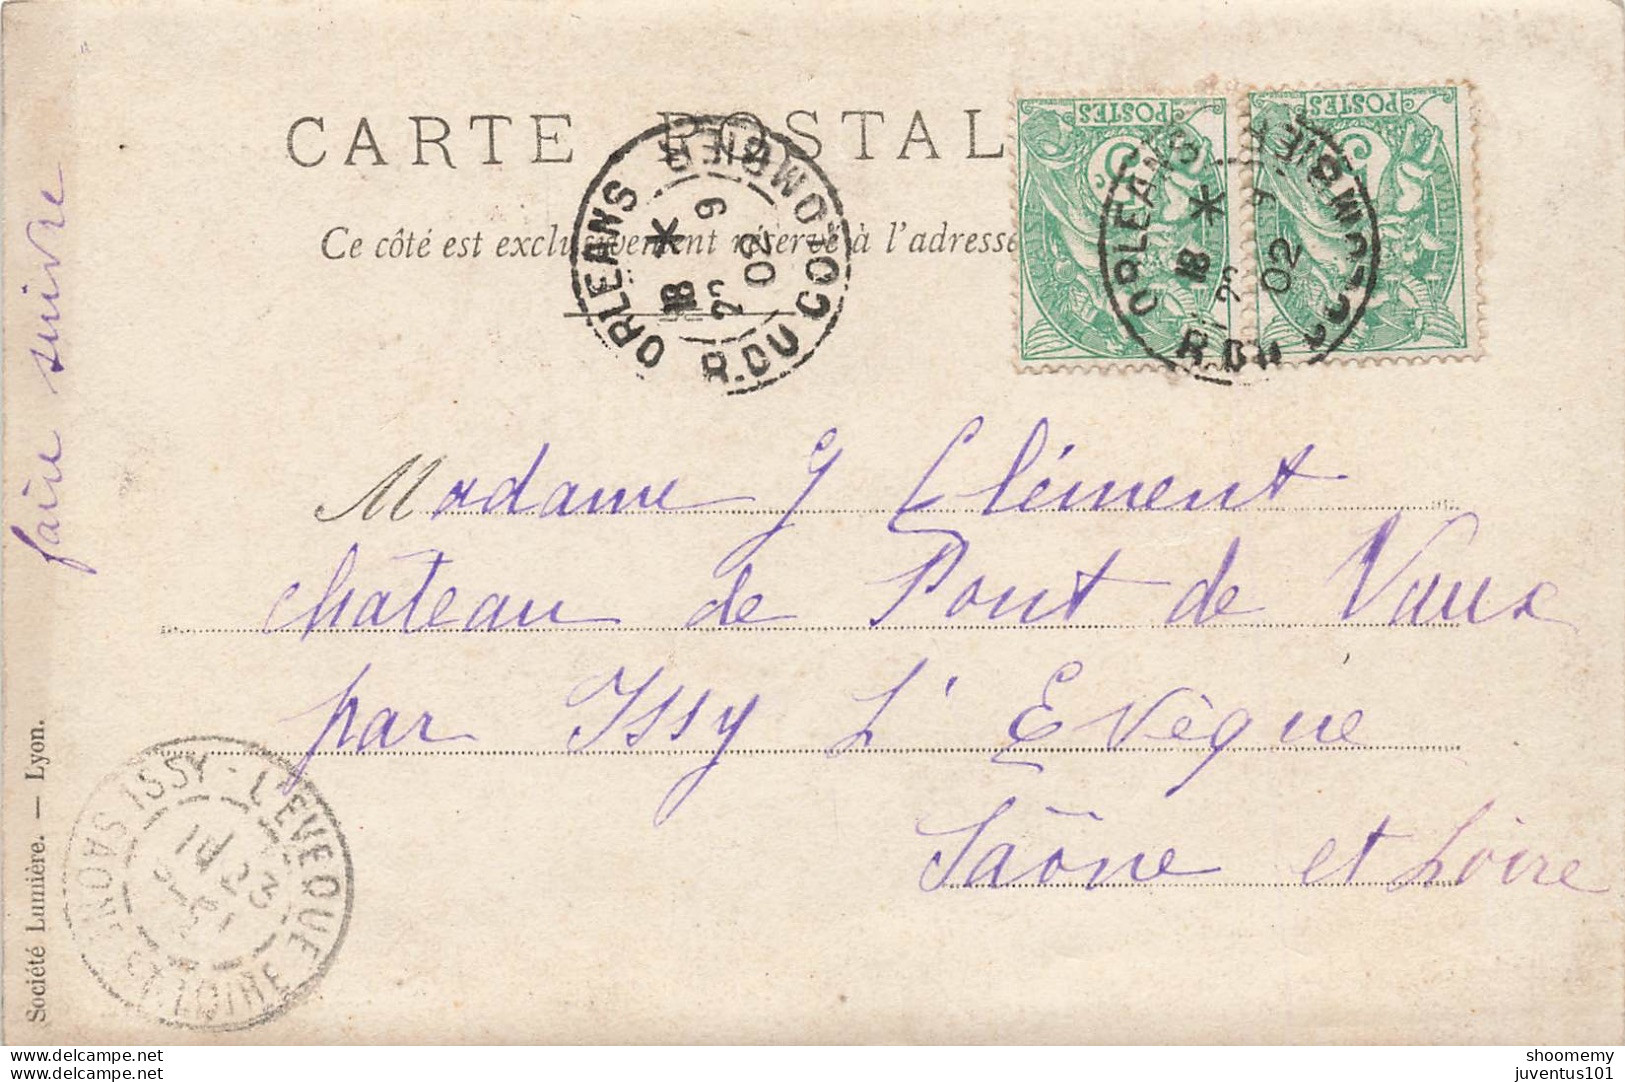 CARTE POSTALE
Ce côté est exclusivement réservé à l'adresse
POSTES
POSTES
ORLEANS R. DU COLOMBIER
18 * 22 9 02
ORLEANS R. DU COLOMBIER
18 * 9 02
faire suivre
Madame J Clément
château de Pont de Vaux
par Issy L'Evèque
Saône et Loire
ISSY-L'EVEQUE SAONE ET LOIRE
23
Société Lumière. — Lyon.
www.delcampe.net
www.delcampe.net
shoomemy
juventus101